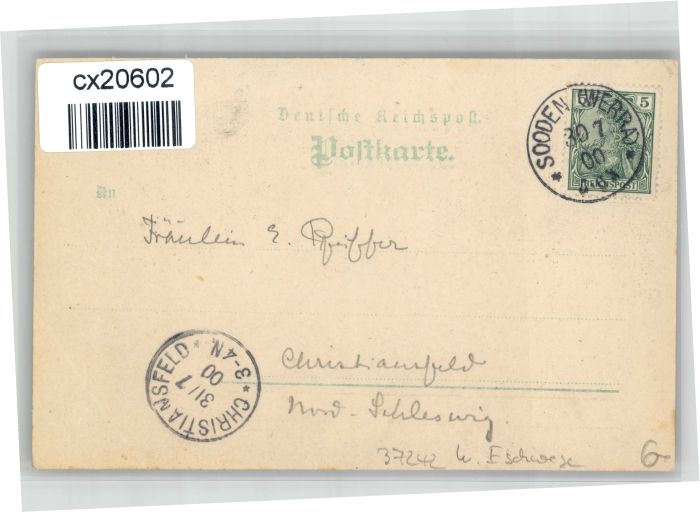 cx20602
Deutsche Reichspost.
Postkarte.
An
5 5
REICHSPOST
* SOODEN (WERRA) *
30 7
00
Fräulein E. Pfeiffer
* CHRISTIANSFELD *
31/7
00
3-4N.
Christiansfeld
Nord-Schleswig.
37242 b. Eschwege
6